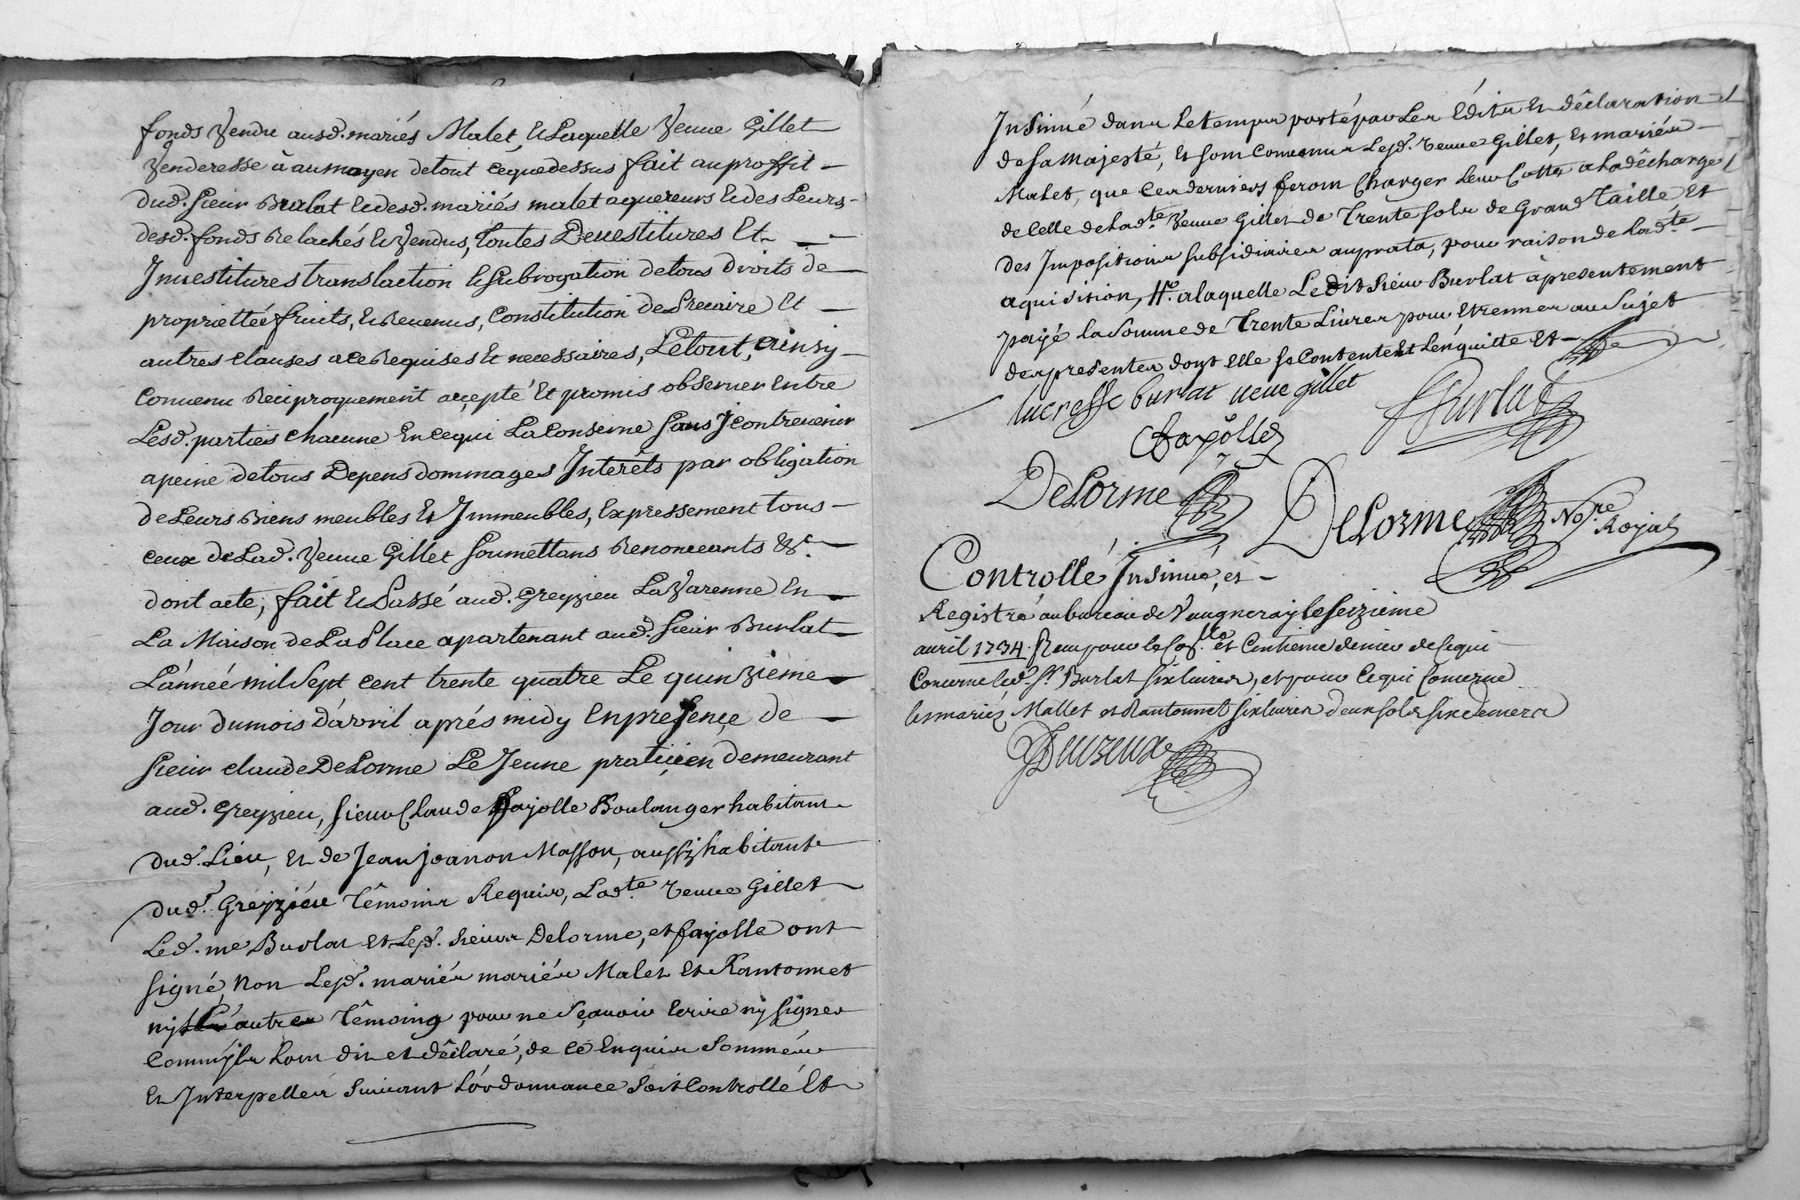 fonds Vendu ausd. mariés Malet, Et Laquelle Veuve Gillet
Venderesse à au moyen de tout ceque dessus fait au proffit
dud. sieur Burlat Et desd. mariés malet aquereurs Et des Leurs
desd. fonds Relachés Et Vendus, toutes Devestitures Et
Investitures translaction Et subrogation de tous droits de
propriettée fruits, Et Revenus, Constitution de Precaire Et
autres clauses a ce Requises Et necessaires, Le tout, ainsy
Convenu Reciproquement accepté Et promis observer Entre
Lesd. parties chacune En cequi La Conserne sans J contrevenir
a peine de tous Depens dommages Interêts par obligation
de Leurs Biens meubles Et Immeubles, Expressement tous
ceux de Lad. Veuve Gillet soumettans Renonceants &c.
dont acte, fait Et Passé aud. Greyzieu La Varenne En
La Maison de La Place apartenant aud. sieur Burlat
L'année mil sept cent trente quatre Le quinzieme
Jour du mois d'avril aprés midy En presence, de
sieur claude DeLorme Le Jeune praticien demeurant
aud. Greyzieu, sieur Claude fayolle Boulanger habitant
dud. Lieu, Et de Jean joanon Masson, aussy habitant
dud. Greyzieu têmoins Requis, Lad.te Veuve Gillet
Led. me Burlat Et Lesd. sieurs Delorme, et fayolle ont
signé, Non Lesd. mariés mariés Malet Et Rantonnet
ny L'autre têmoing pour ne sçavoir Ecrire ny signer
Comm'jls L'ont dit et dêclaré, de ce Enquis sommés
Et Interpellés suivant L'ordonnance soit Controllé Et
Insinué dans Le temps porté par Les Edits Et dêclaration
de sa Majesté, Et sont Convenus Lesd. Veuve Gillet, Et mariés
Malet, que Ces derniers feront Charger Leur Cotte a La dêcharge
de Celle de Lad.te Veuve Gillet de trente sols de Grand Taille Et
des Impositions subsidiaires au prata, pour raison de Lad.te
aquisition, a Laquelle Ledit sieur Burlat à presentement
payé La somme de trente Livres pour Etrennes au sujet
des presentes dont Elle se Contente Et L'en quitte Et
lucresse burlat veuve gillet
Burlat
fayolle
DeLorme
DeLorme No.re
Royal
Controllé Insinué, et
Registré au bureau de Vaugneray le seizieme
avril 1734. Receu pour le Co.lle et Centieme denier de cequi
Concerne led. Sr. Burlat six livres, et pour ce qui Concerne
les mariez Mallet et Rantonnet six livres deux sols six deniers